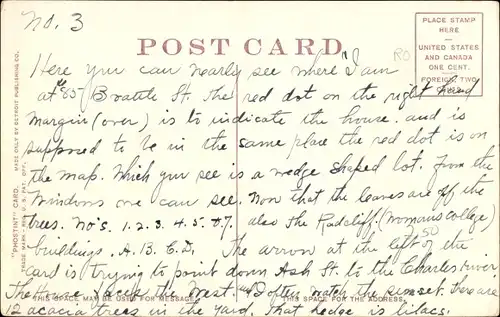 No. 3
POST CARD
PLACE STAMP
HERE
UNITED STATES
AND CANADA
ONE CENT.
FOREIGN, TWO
RO
Here you can nearly see where "I am
at #85" Brattle St. The red dot on the right hand
margin (over) is to indicate the house. and is
supposed to be in the same place the red dot is on
the map. Which you see is a wedge shaped lot. From the
Windows one can see. Now that the leaves are off the
trees. No's. 1. 2. 3. 4. 5. & 7. also the Radcliff (Womans College)
buildings. A. B. C. D. The arrow at the left of the
card is trying to point down Ash St. to the Charles River
The House faces the West. and I often watch the sunset. There are
12 acacia trees in the yard. That hedge is lilacs.
7.50
THIS SPACE MAY BE USED FOR MESSAGE.
THIS SPACE FOR THE ADDRESS.
"PHOSTINT" CARD. MADE ONLY BY DETROIT PUBLISHING CO.
TRADE MARK REG. U. S. PAT. OFF.